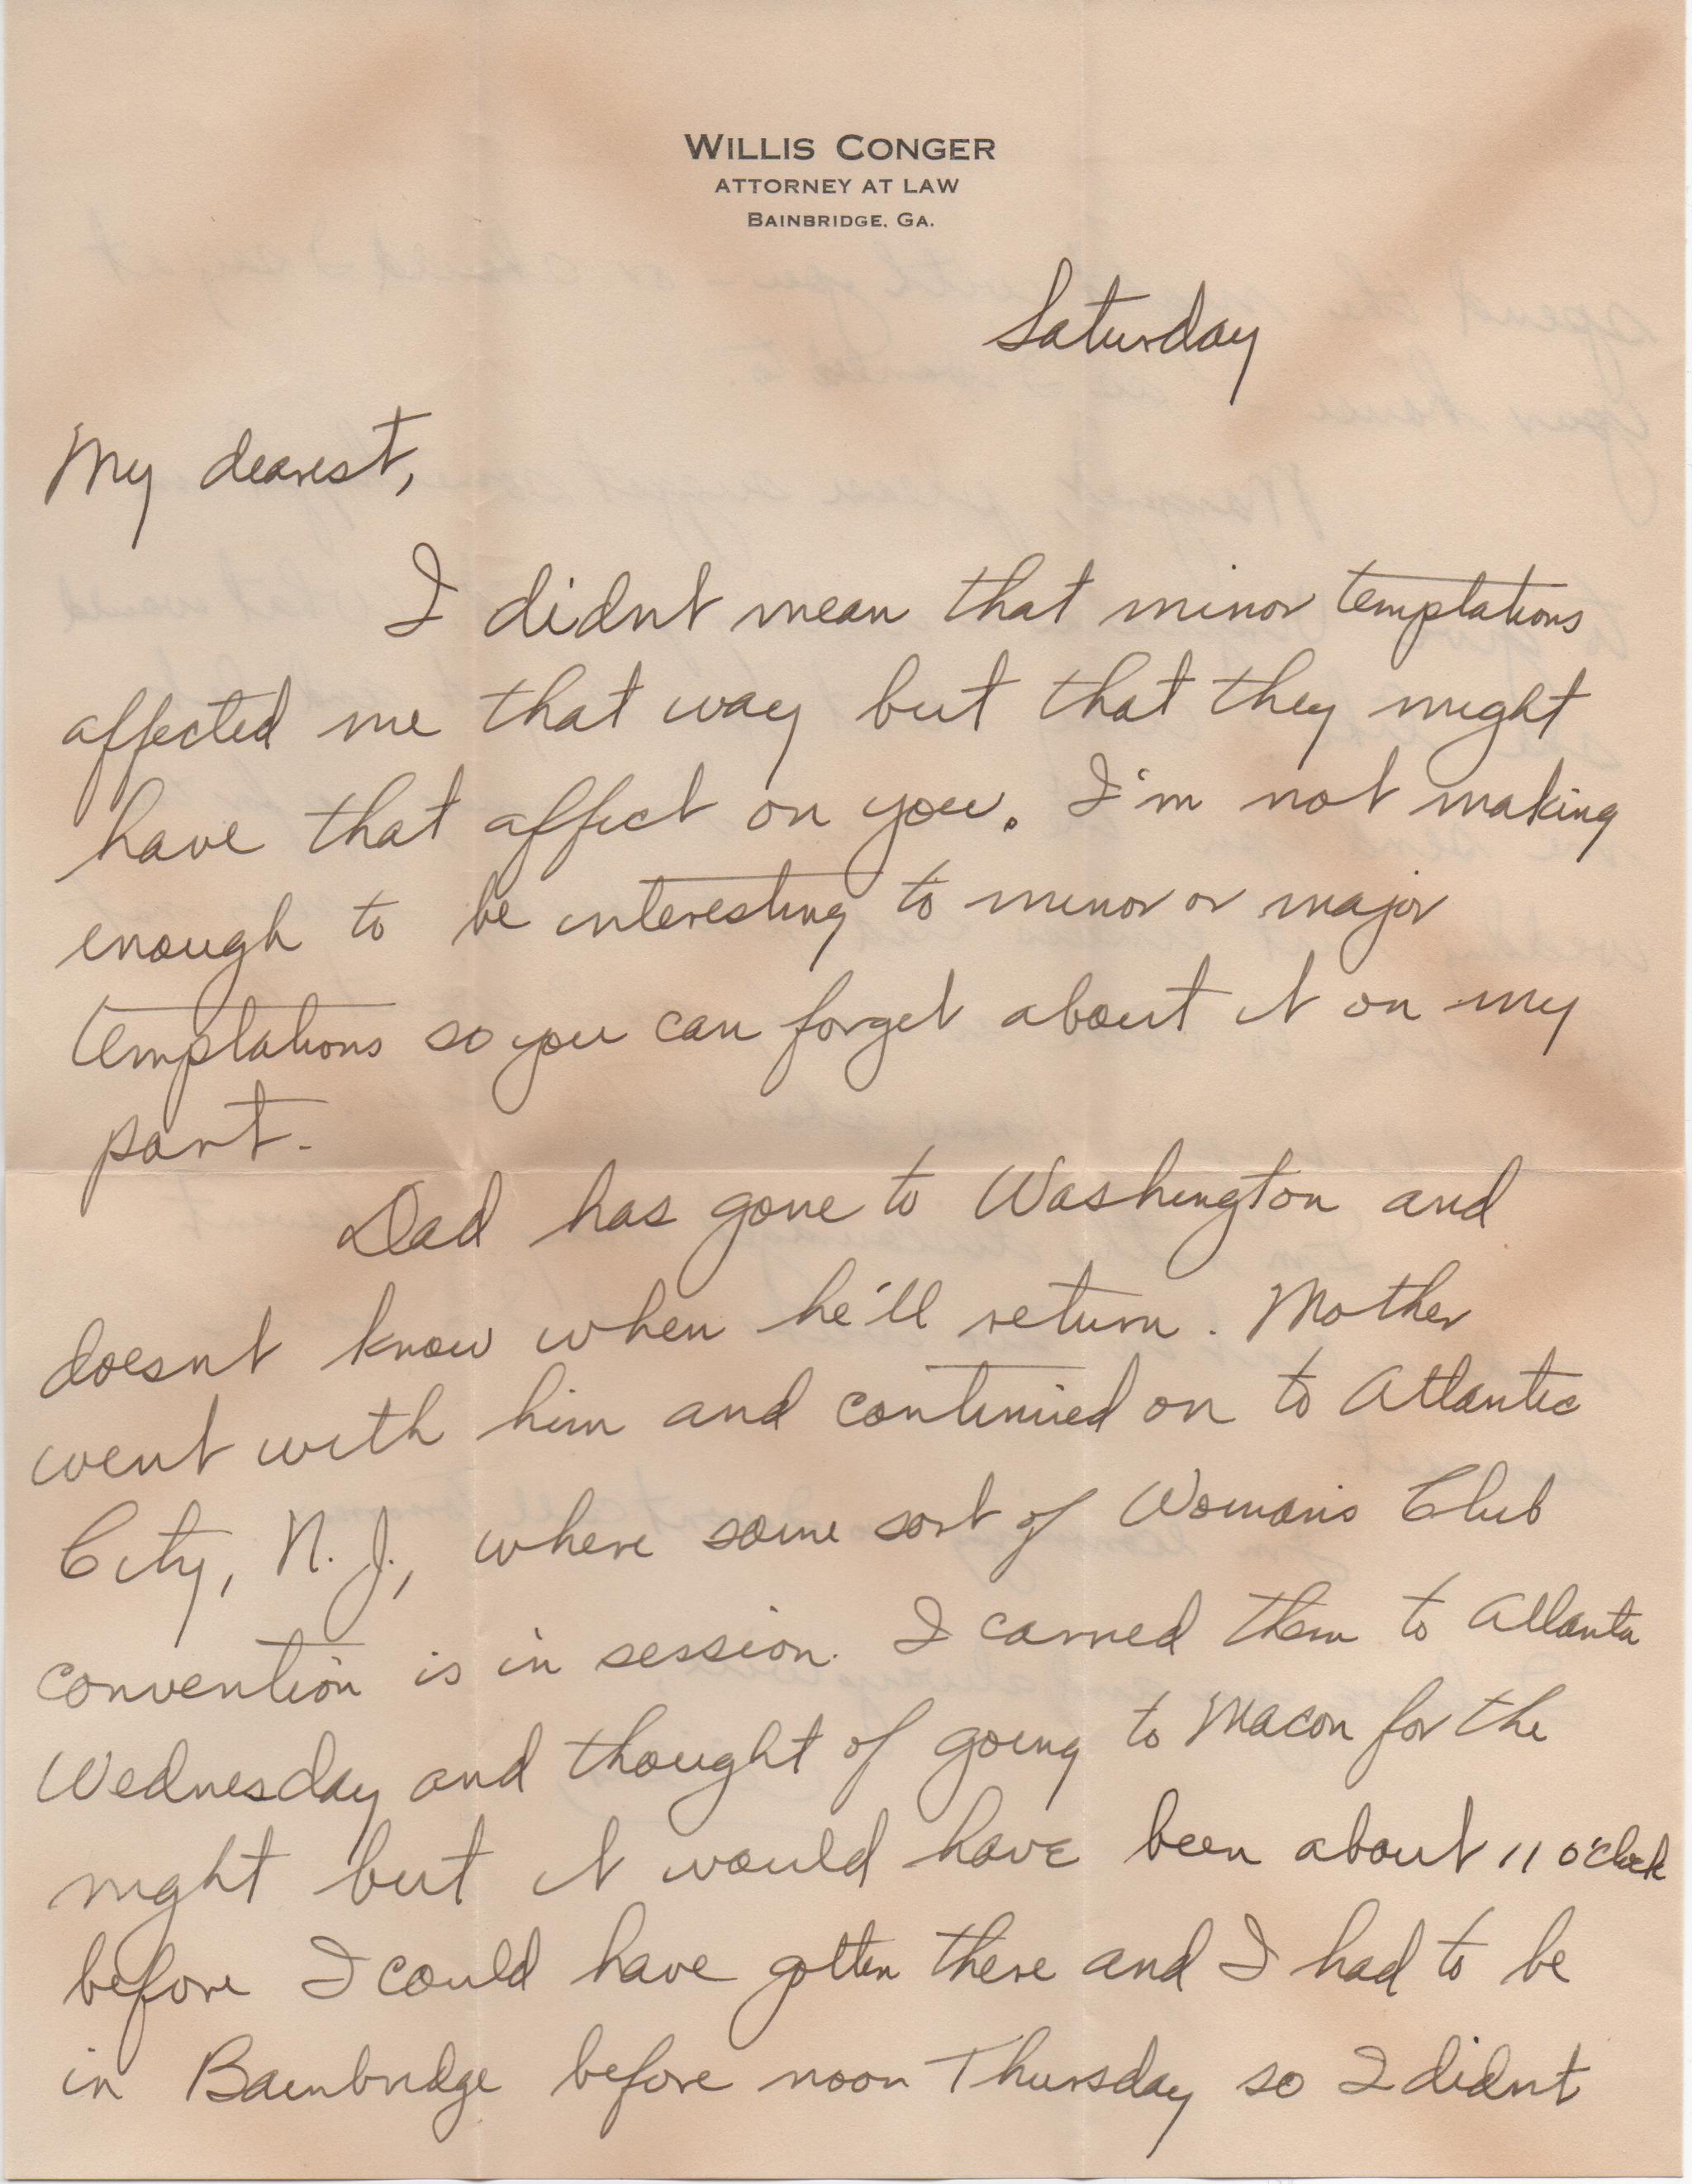 WILLIS CONGER
ATTORNEY AT LAW
BAINBRIDGE, GA.
Saturday
My dearest,
I didnt mean that minor temptations
affected me that way but that they might
have that affect on you. I'm not making
enough to be interesting to minor or major
temptations so you can forget about it on my
part.
Dad has gone to Washington and
doesnt know when he'll return. Mother
went with him and continued on to Atlantic
City, N. J., where some sort of Woman's Club
convention is in session. I carried them to Atlanta
Wednesday and thought of going to Macon for the
night but it would have been about 11 o'clock
before I could have gotten there and I had to be
in Bainbridge before noon Thursday so I didnt